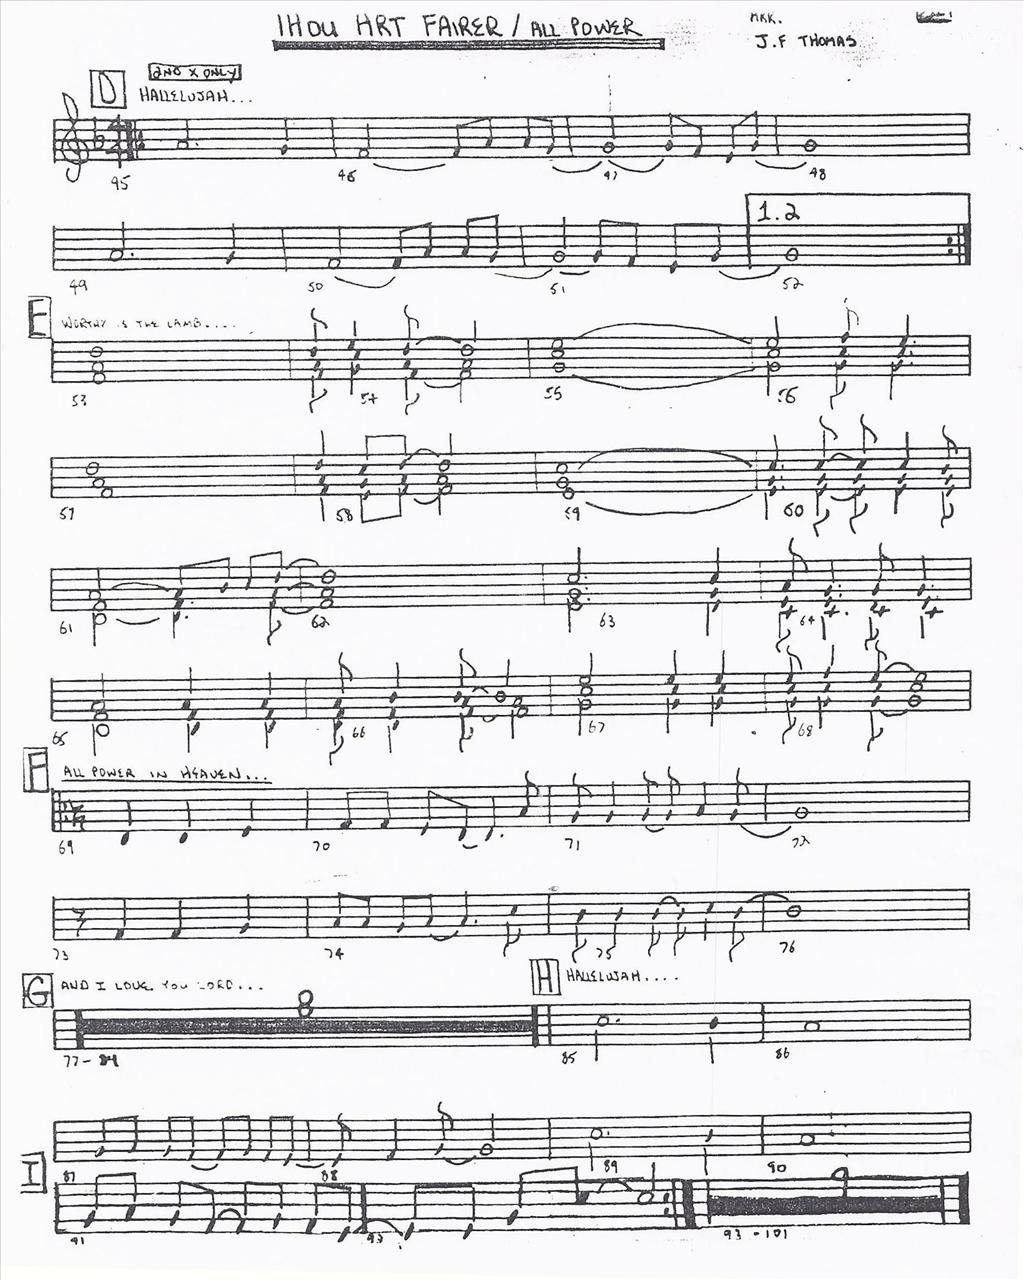 THOU ART FAIRER / ALL POWER
ARR.
J.F THOMAS
D
2ND X ONLY
HALLELUJAH...
45 46 47 48
1.2
49 50 51 52
E
WORTHY IS THE LAMB....
53 54 55 56
57 58 59 60
61 62 63 64
65 66 67 68
F
ALL POWER IN HEAVEN...
69 70 71 72
73 74 75 76
G
AND I LOVE YOU LORD...
8
H
HALLELUJAH....
77-84 85 86
87 88 89 90
I
9
91 92 93-101